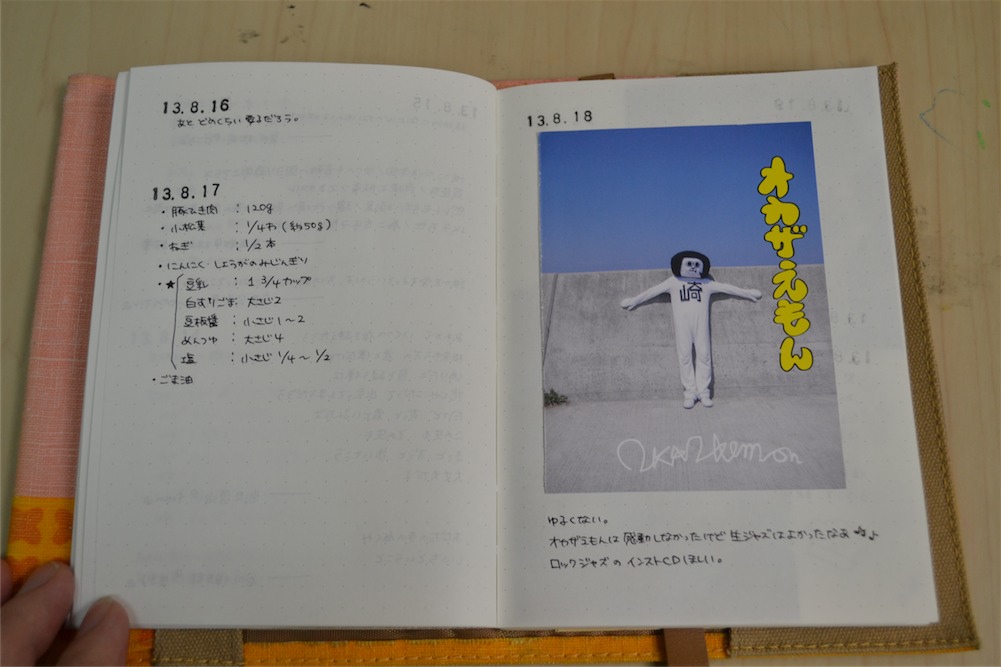 13.8.16
あと どのくらい 要るだろう。
13.8.17
・豚ひき肉 : 120g
・小松菜 : 1/4わ (約50g)
・ねぎ : 1/2本
・にんにく・しょうがのみじんぎり
・★ 豆乳 : 1 3/4カップ
白すりごま : 大さじ2
豆板醤 : 小さじ1〜2
めんつゆ : 大さじ4
塩 : 小さじ 1/4〜1/2
・ごま油
13.8.18
オカザえもん
崎
OKAZAemon
ゆるくない。
オカザえもんは感動しなかったけど 生ジャズはよかったなあ♪
ロックジャズの インストCDほしい。